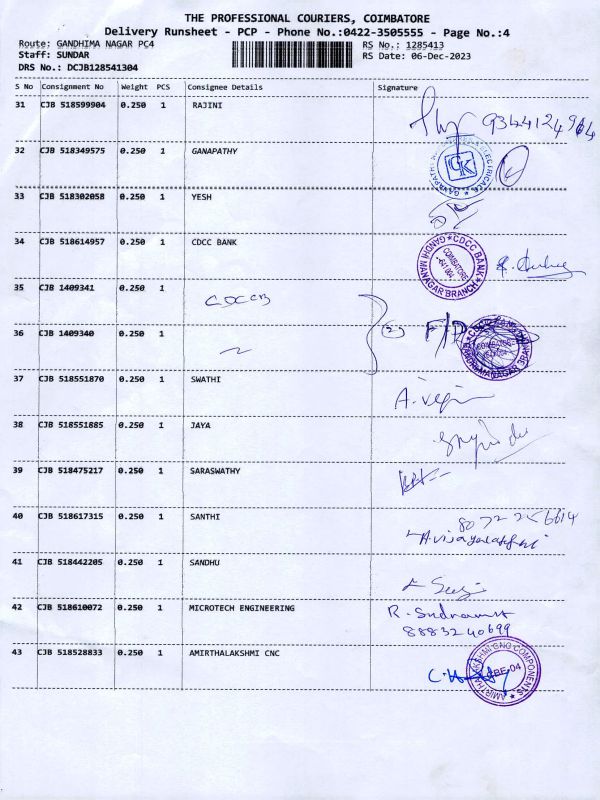 THE PROFESSIONAL COURIERS, COIMBATORE
Delivery Runsheet - PCP - Phone No.:0422-3505555 - Page No.:4
Route: GANDHIMA NAGAR PC4 RS No.: 1285413
Staff: SUNDAR RS Date: 06-Dec-2023
DRS No.: DCJB128541304
S No Consignment No Weight PCS Consignee Details Signature
31 CJB 518599904 0.250 1 RAJINI
32 CJB 518349575 0.250 1 GANAPATHY
GK
33 CJB 518302058 0.250 1 YESH
34 CJB 518614957 0.250 1 CDCC BANK
CDCC BANK GANDHI MANAGAR BRANCH
COIMBATORE
35 CJB 1409341 0.250 1 CDCCB
36 CJB 1409340 0.250 1 (2)
37 CJB 518551870 0.250 1 SWATHI
38 CJB 518551885 0.250 1 JAYA
39 CJB 518475217 0.250 1 SARASWATHY
40 CJB 518617315 0.250 1 SANTHI
41 CJB 518442205 0.250 1 SANDHU
42 CJB 518610072 0.250 1 MICROTECH ENGINEERING
8883240699
43 CJB 518528833 0.250 1 AMIRTHALAKSHMI CNC
AMIRTHALAKSHMI CNC COMPONENTS